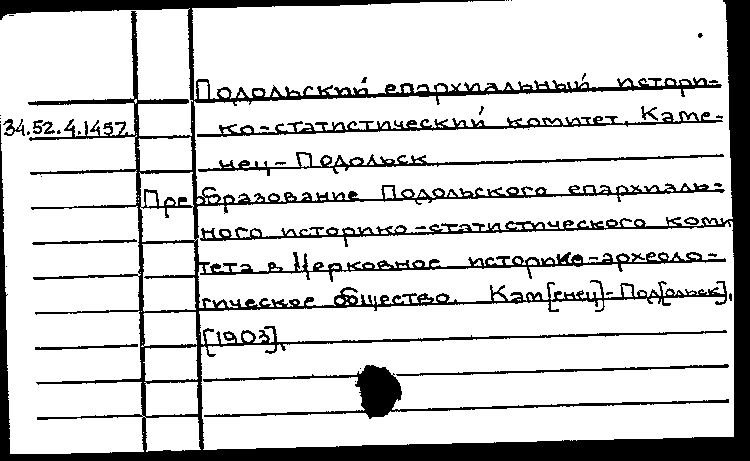 Подольский епархиальный истори=
34.52.4.1457 ко=статистический комитет. Каме=
нец-Подольск
Преобразование Подольского епархиаль=
ного историко=статистического коми
тета в Церковное историко=археоло=
гическое общество. Кам[енец]-Под[ольск],
[1903].